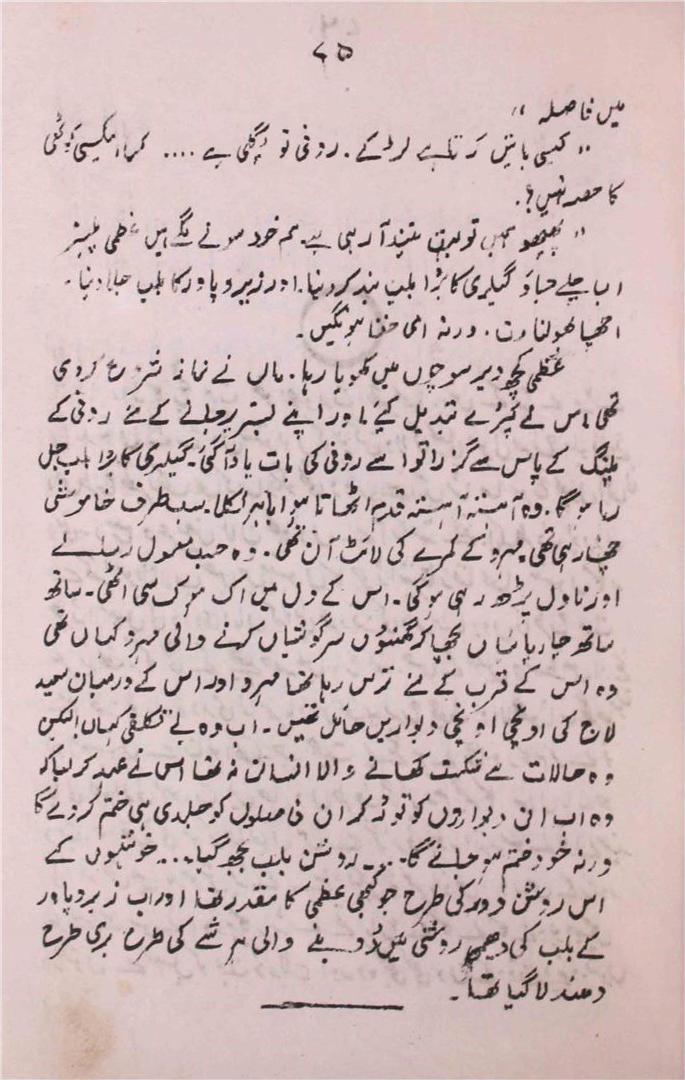 ۷۵
میں فاصلہ "
" کیسی باتیں کرتا ہے لڑکے . روفی تو پگلی ہے .... کمرا، نیکسی کوٹھی
کا حصہ نہیں؟ .
" پھپھو ہمیں تو بہت نیند آ رہی ہے . ہم خود سونے لگے ہیں عظمی پلیز
اب چلے جاؤ گیلری کا بڑا بلب بند کر دینا . اور زیرو پاور کا بلب جلا دینا .
اچھا بھولنا مت . ورنہ امی خفا ہونگیں .
عظمی کچھ دیر سوچوں میں کھویا رہا . ماں نے نماز شروع کر دی
تھی اس نے کپڑے تبدیل کیے . اور اپنے بستر پر جانے کے لئے روفی کے
پلنگ کے پاس سے گزرا تو اسے روفی کی بات یاد آگئی . گیلری کا بڑا بلب جل
رہا ہوگا . وہ آہستہ آہستہ قدم اٹھاتا ہوا باہر نکلا . سب طرف خاموشی
چھا رہی تھی مہرو کے کمرے کی لائٹ آن تھی . وہ حسب معمول رسالے
اور ناول پڑھ رہی ہوگی . اس کے دل میں اک ہوک سی اٹھی . ساتھ
ساتھ چارپائیاں بچھا کر گھنٹوں سرگوشیاں کرنے والی مہرو کہاں تھی
وہ اس کے قرب کے لئے ترس رہا تھا مہرو اور اس کے درمیان سعید
لاج کی اونچی اونچی دیواریں حائل تھیں . اب وہ بے تکلفی کہاں لیکن
وہ حالات سے شکست کھانے والا انسان نہ تھا اس نے عہد کر لیا کہ
وہ اب ان دیواروں کو توڑ کر ان فاصلوں کو جلدی ہی ختم کر دے گا
ورنہ خود ختم ہو جائے گا . . . روشن بلب بجھ گیا . . . خوشیوں کے
اس روشن دور کی طرح جو کبھی عظمی کا مقدر تھا اور اب زیرو پاور
کے بلب کی دھیمی روشنی میں ڈوبنے والی ہر شے کی طرح بری طرح
دھندلا گیا تھا .